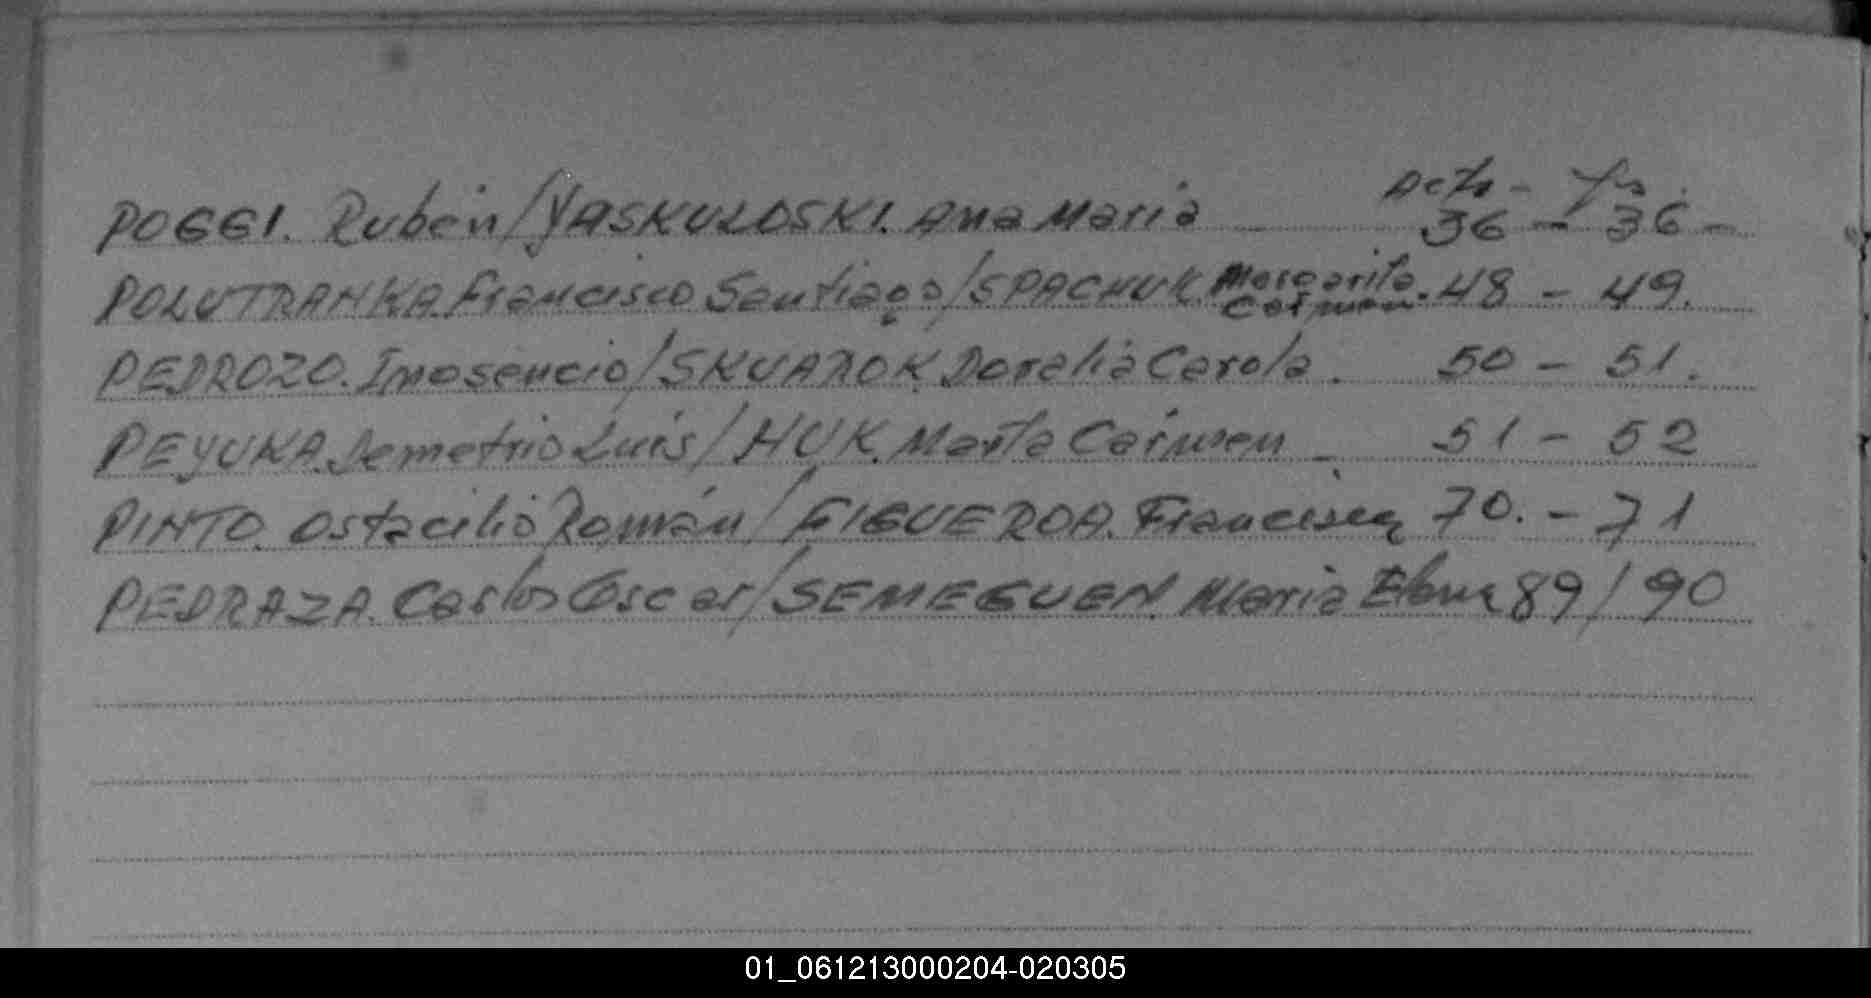 Acta - Fs.
POGGI. Rubén/YASKULOSKI. Ana Maria 36 - 36 -
POLUTRANKA. Francisco Santiago/SPACHUK. Margarita Carmen. 48 - 49.
PEDROZO. Inosencio/SKUAROK. Doralia Carola. 50 - 51.
PEYUKA. Demetrio Luis/HUK. Marta Carmen - 51 - 52
PINTO. Ostacilio Román/FIGUEROA. Francisca 70. - 71
PEDRAZA. Carlos Oscar/SEMEGUEN. Maria Elena 89/90
01_061213000204-020305